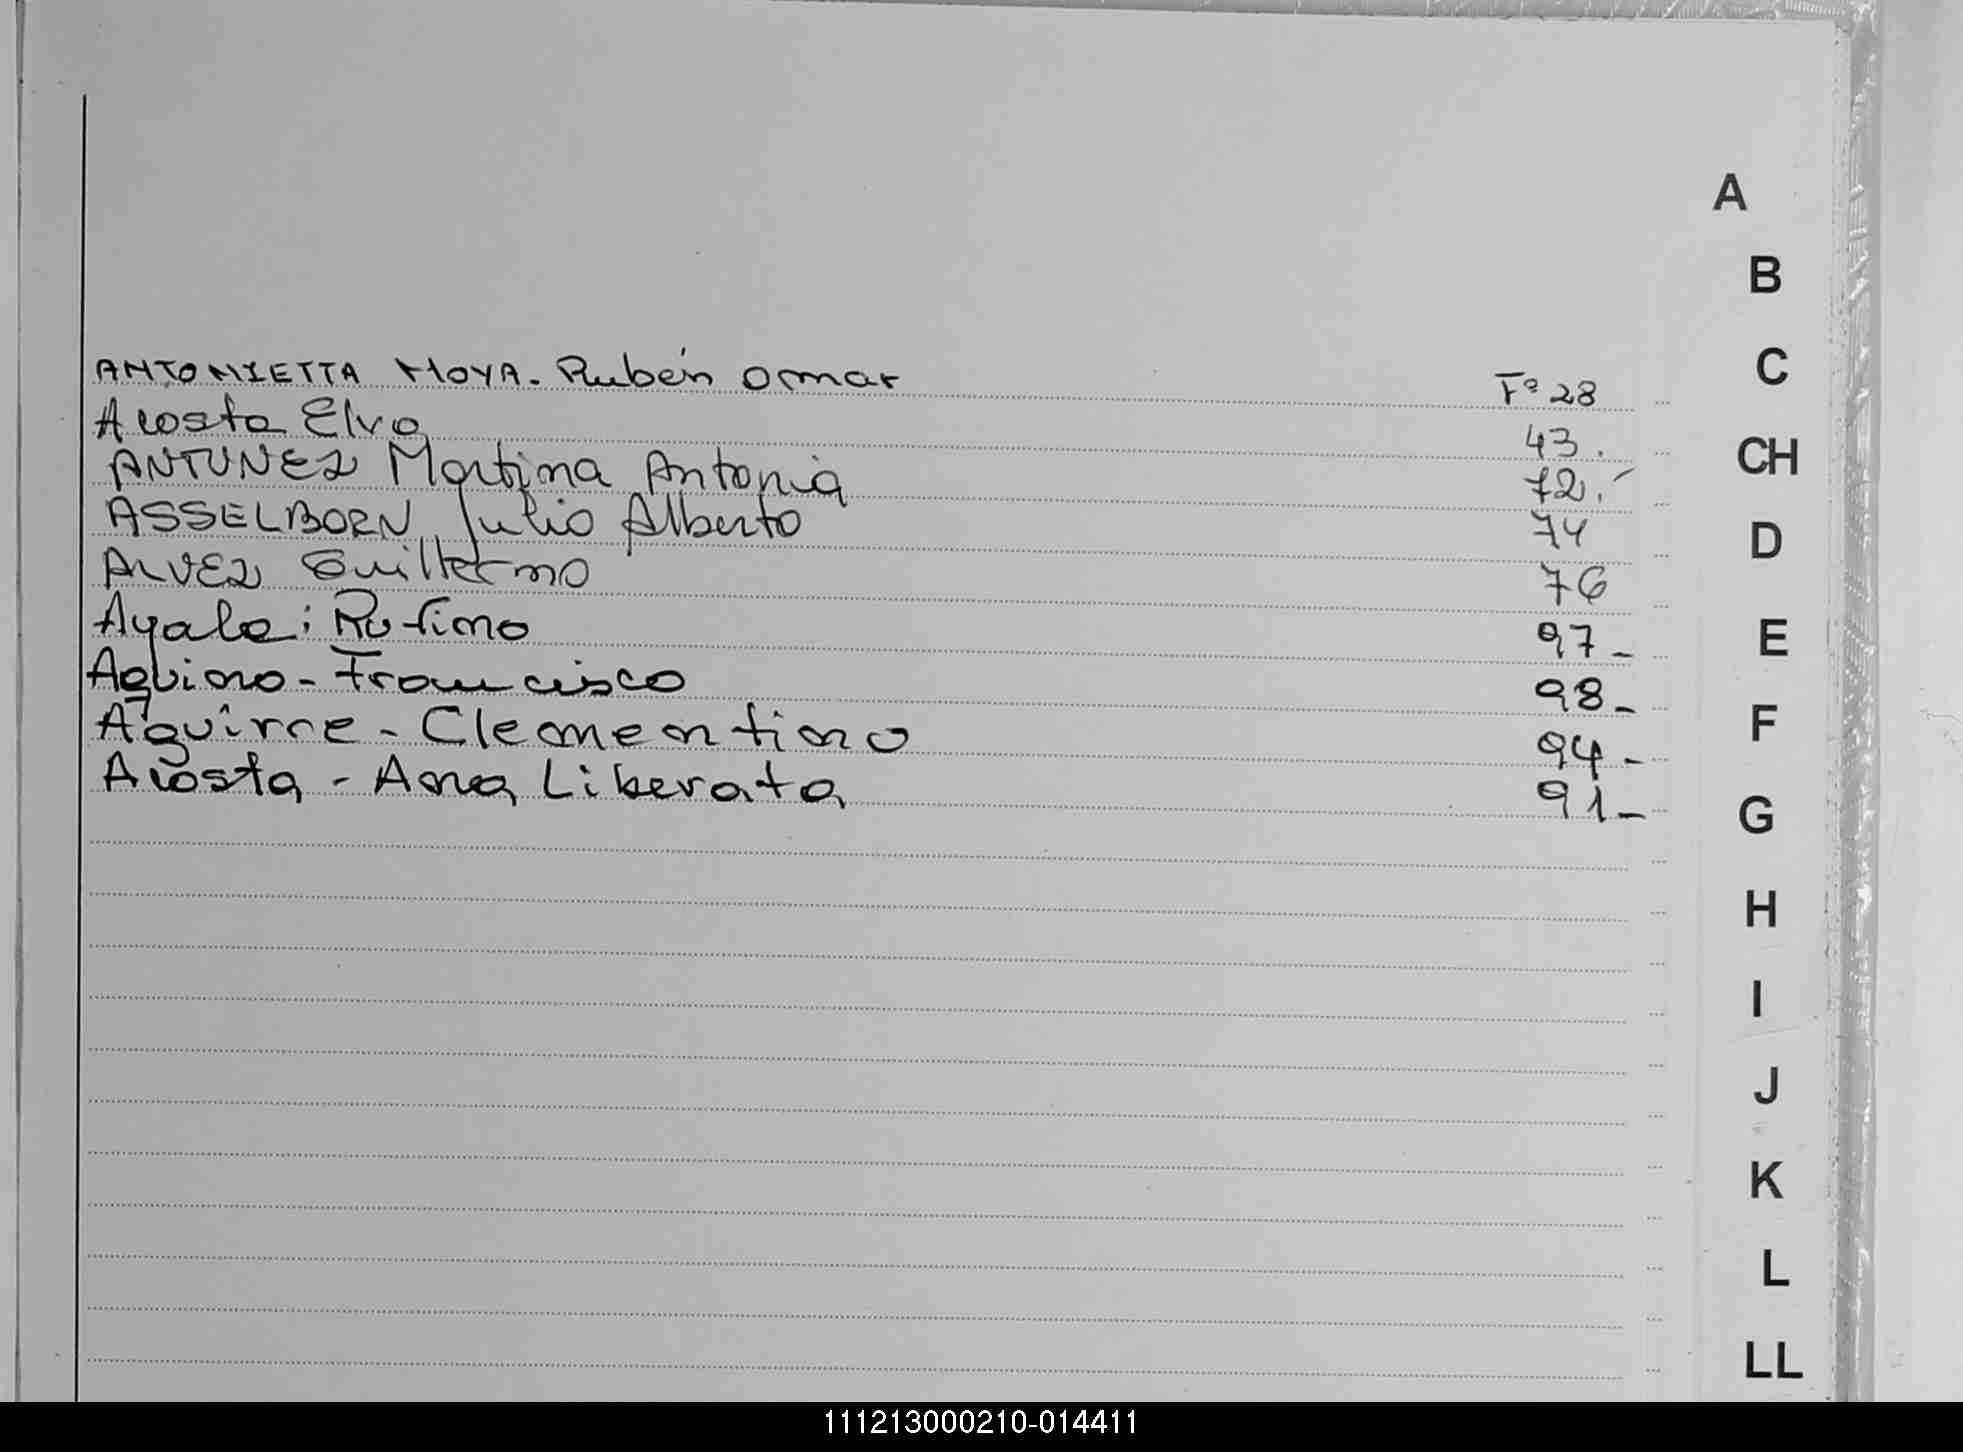 A
B
ANTONIETTA MOYA. Rubén Omar Fº 28
C
Acosta Elva 43.
ANTUNEZ Martina Antonia 72.-
CH
ASSELBORN Julio Alberto 74
D
ALVEZ Guillermo 76
Ayala; Rufino 97-
E
Aquino - Francisco 98-
Aguirre - Clementino 94-
F
Acosta - Ana Liberata 91-
G
H
I
J
K
L
LL
111213000210-014411